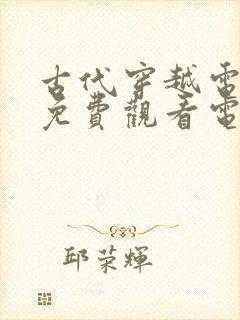 古代穿越電
免費觀看電
邱荣輝